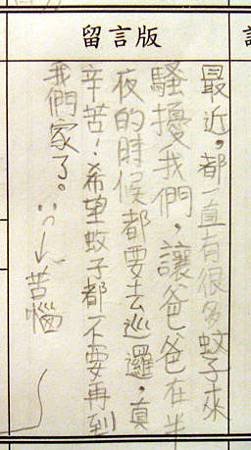 留言版
最近，都一直有很多蚊子來
騷擾我們，讓爸爸在半
夜的時候都要去巡邏，真
辛苦！希望蚊子都不要再到
我們家了。
苦惱